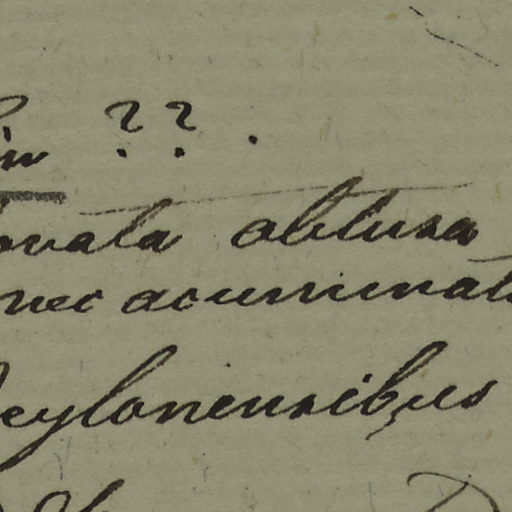 in ? ? .
ovata obtusa
nec acuminat
Zeylonensibus